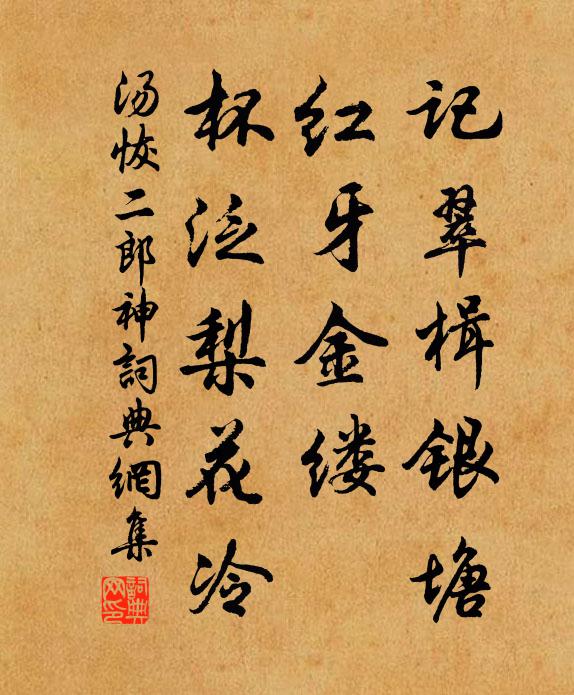 记翠楫银塘
红牙金缕
杯泛梨花冷
汤恢二郎神詞典網集
詞典网印